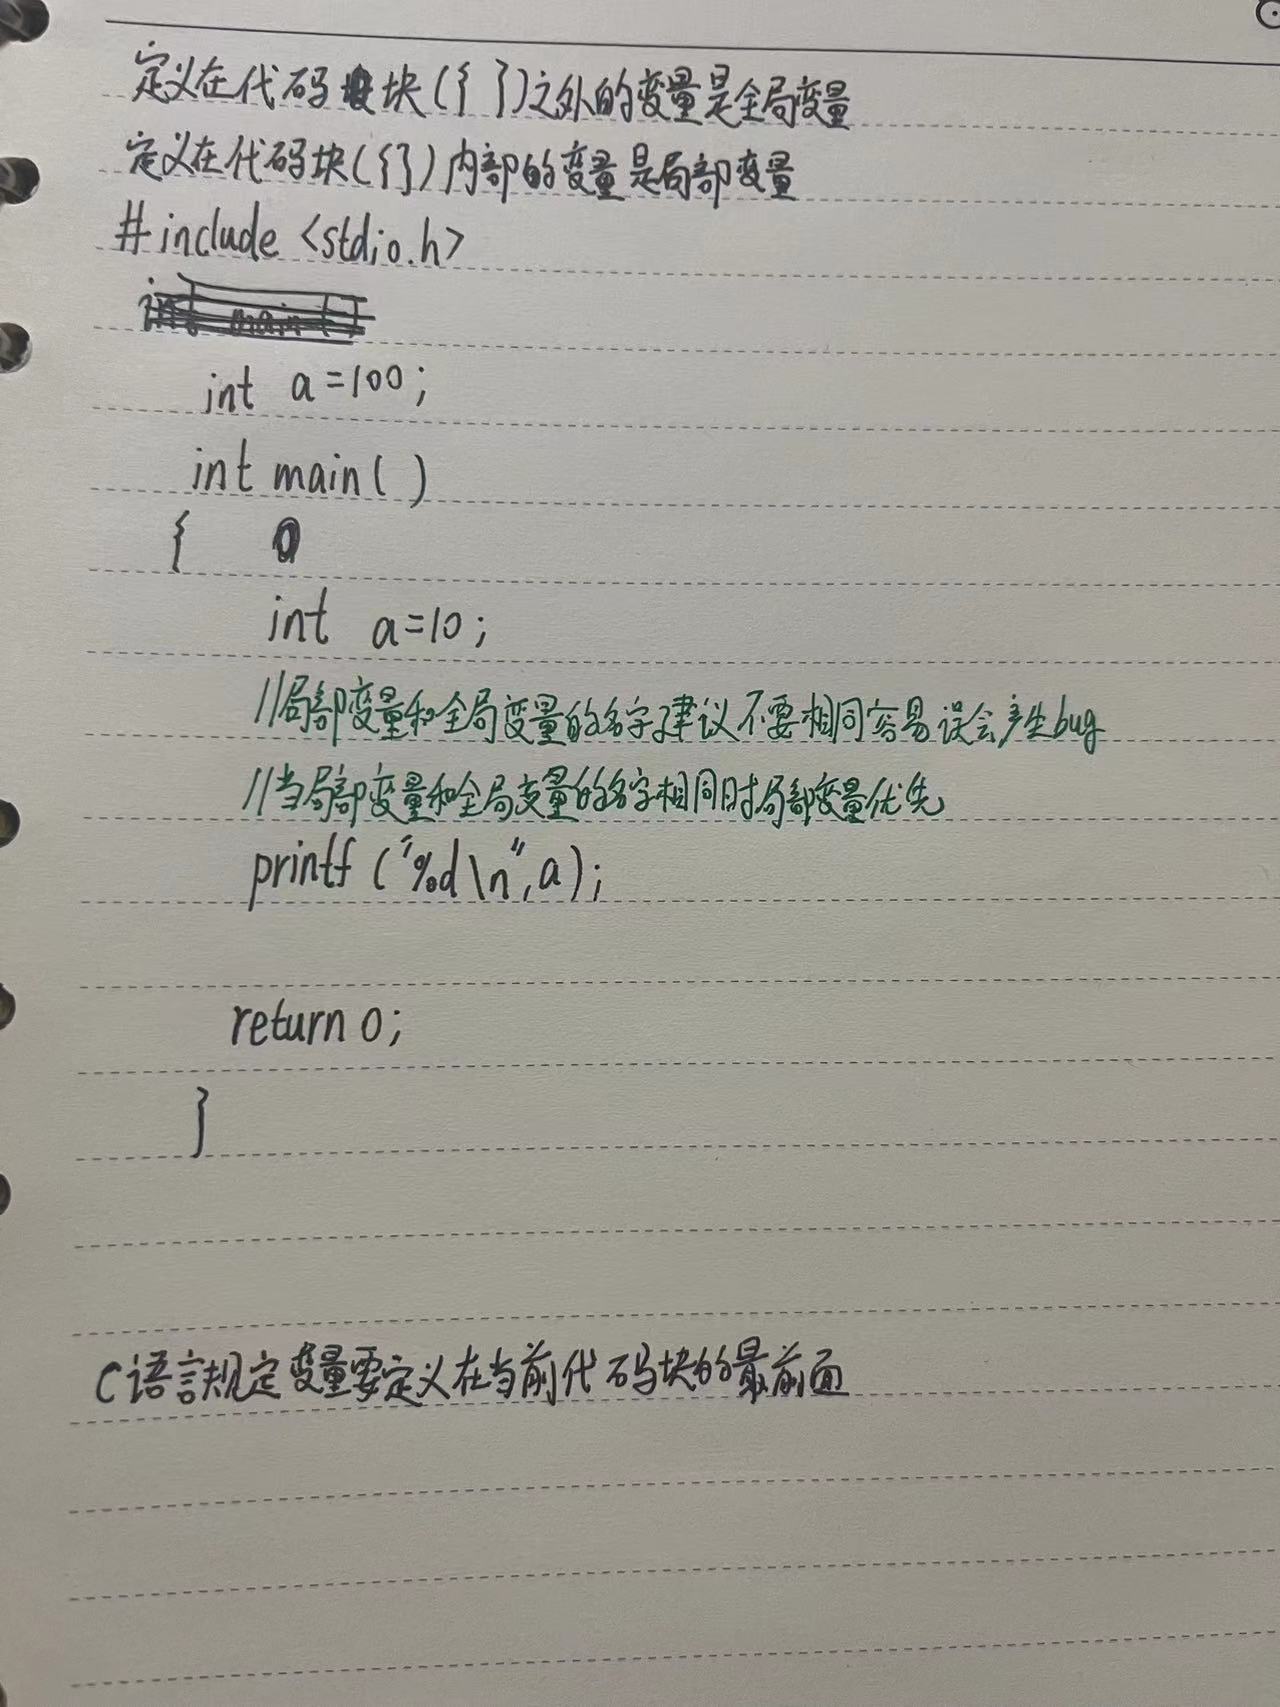 定义在代码块({ })之外的变量是全局变量
定义在代码块({ })内部的变量是局部变量
#include <stdio.h>
int a=100;
int main( )
{
int a=10;
//局部变量和全局变量的名字建议不要相同容易误会产生bug
//当局部变量和全局变量的名字相同时局部变量优先
printf ("%d\n",a);
return 0;
}
C语言规定变量要定义在当前代码块的最前面